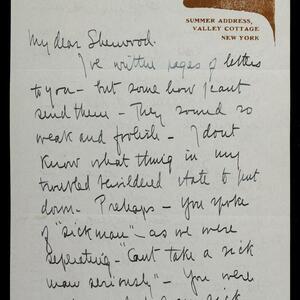 SUMMER ADDRESS,
VALLEY COTTAGE
NEW YORK
My dear Sherwood.
I've written pages of letters
to you - but some how I cant
send them - They sound so
weak and foolish - I dont
know what thing in my
troubled bewildered state to put
down. Prehaps - You spoke
of "sick man" - as we were
seperating - "Cant take a sick
man seriously" - You were
sick